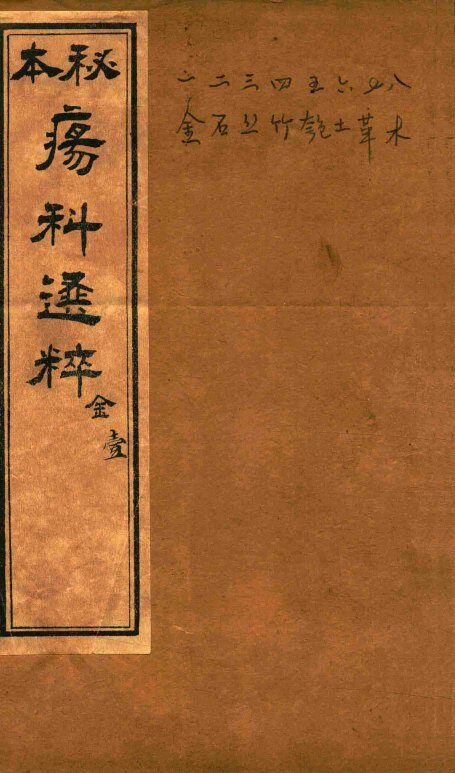 秘本
瘍科選粹
金
壹
一二三四五六七八
金石丝竹匏土革木